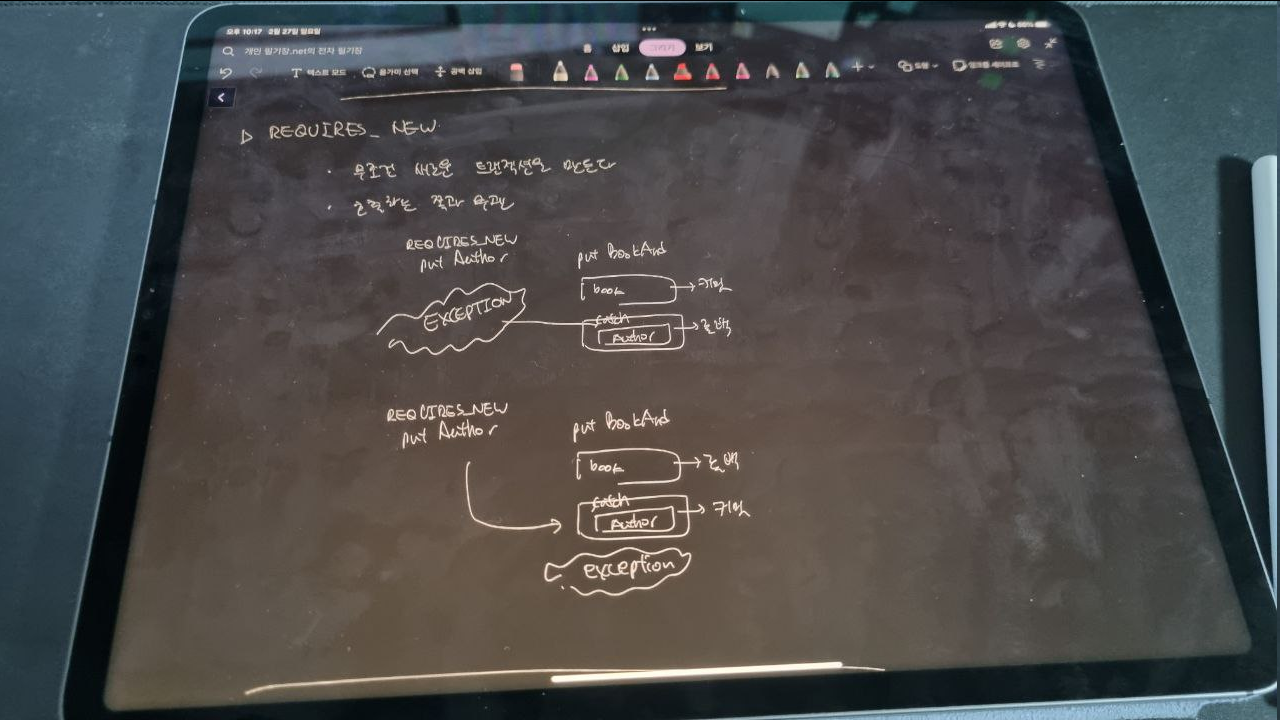 오후 10:17 2월 27일 일요일
개인 필기장.net의 전자 필기장
홈 삽입 그리기 보기
텍스트 모드 올가미 선택 공백 삽입 도형
REQUIRES_NEW
· 무조건 새로운 트랜잭션을 만든다
REQUIRES_NEW
put Author
put BookAnd
EXCEPTION
book → 커밋
catch
Author → 롤백
REQUIRES_NEW
put Author
put BookAnd
book → 롤백
catch
Author → 커밋
exception